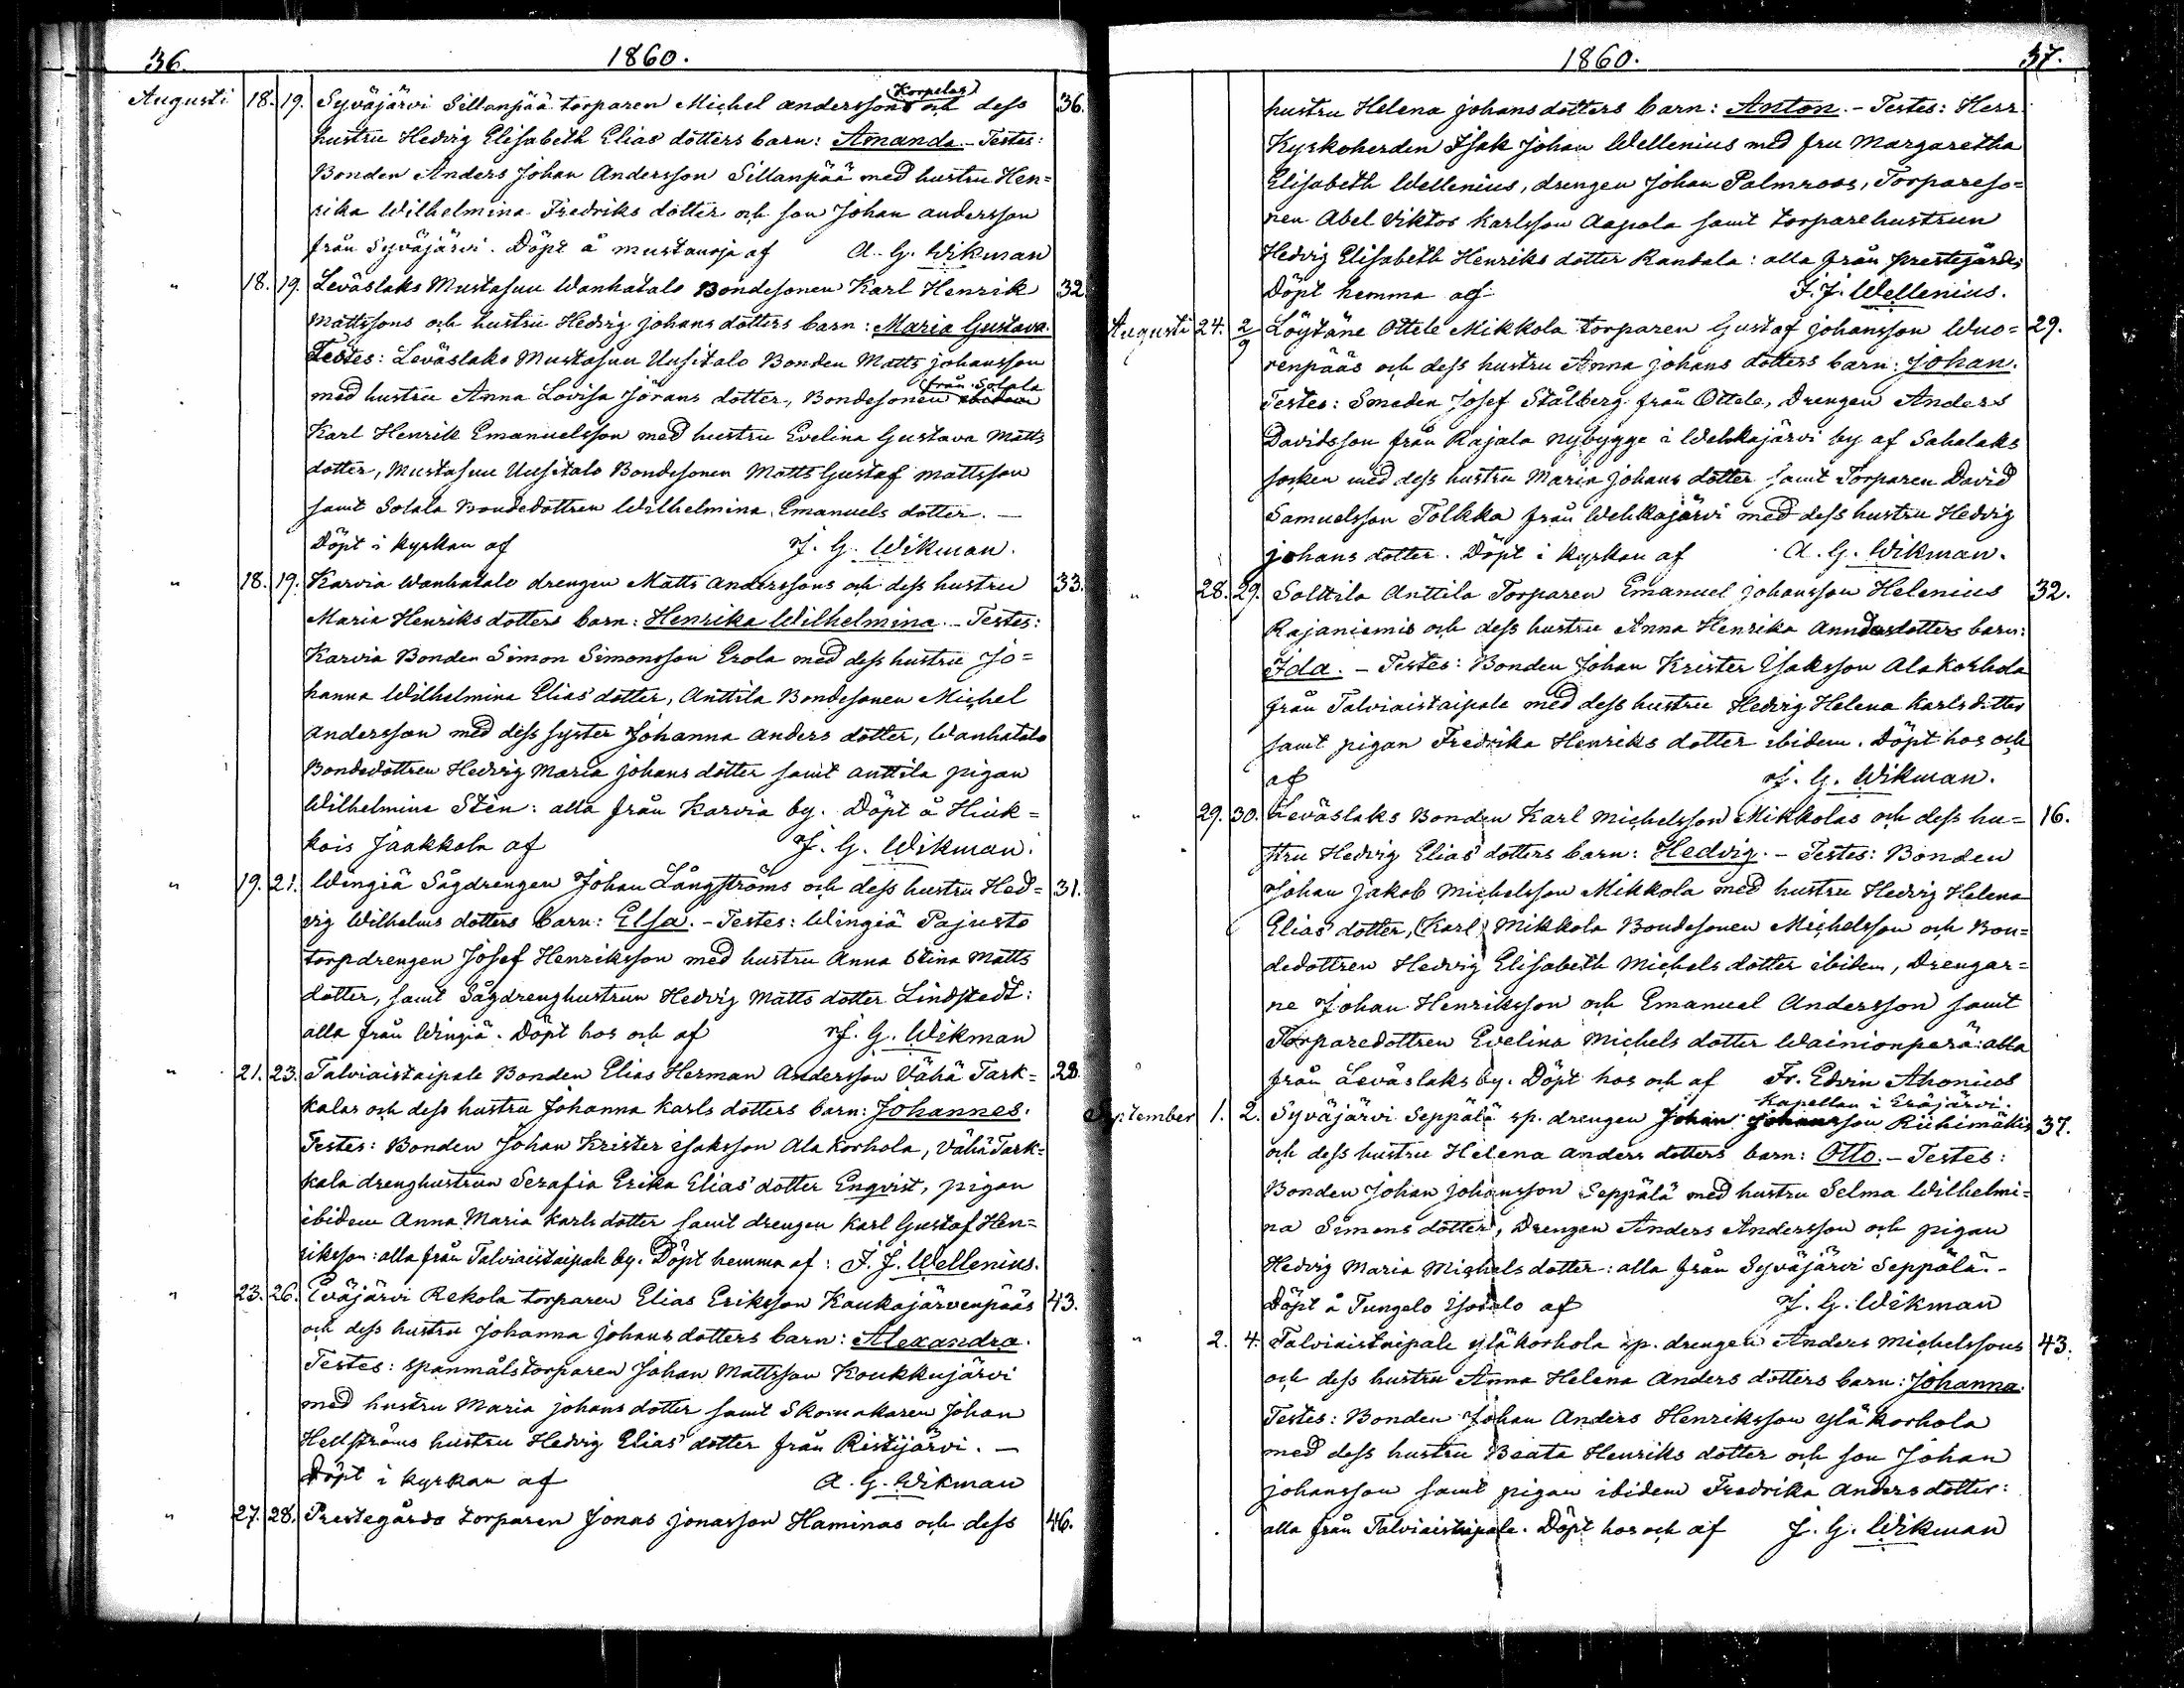 36.
1860.
Augusti 18. 19. Syväjärvi Sillanpää torparen Michel anderssons Korpelas och dess 36.
hustru Hedvig Elisabeth Elias dotters barn: Amanda. - Testes:
Bonden Anders Johan Andersson Sillanpää med hustru Hen=
rika Wilhelmina Fredriks dotter och son Johan andersson
från Syväjärvi. Döpt å mustanoja af A. G. Wikman
" 18. 19. Leväslaks Mustasuu Wanhatalo Bondesonen Karl Henrik 32.
Mattssons och hustru Hedvig Johans dotters barn: Maria Gustava.
Testes: Leväslaks Mustasuu Uusitalo Bonden Matts johansson
med hustru Anna Lovisa Jörans dotter, Bondesonen ibidem från Solala
Karl Henrik Emanuelsson med hustru Evelina Gustava Matts
dotter, Mustasuu Uusitalo Bondesonen Matts Gustaf mattsson
samt Solala Bondedottren Wilhelmina Emanuels dotter. —
Döpt i kyrkan af J. G. Wikman.
" 18. 19. Karvia Wanhatalo drengen Matts anderssons och dess hustru 33.
Maria Henriks dotters barn: Henrika Wilhelmina. - Testes:
Karvia Bonden Simon Simonsson Erola med dess hustru Jo=
hanna Wilhelmina Elias dotter, Anttila Bondesonen Michel
Andersson med dess syster Johanna anders dotter, Wanhatalo
Bondedottren Hedvig Maria johans dotter samt anttila pigan
Wilhelmina Stén: alla från Karvia by. Döpt å Hiuk=
kois Jaakkola af J. G. Wikman.
" 19. 21. Wingiä Sågdrengen Johan Långströms och dess hustru Hed= 31.
vig Wilhelms dotters barn: Elsa. - Testes: Wingiä Pajusto
torpdrengen Josef Henriksson med hustru Anna Stina Matts
dotter, samt Sågdrenghustrun Hedvig Matts dotter Lindstedt:
alla från Wingiä. Döpt hos och af J. G. Wikman
" 21. 23. Talviaistaipale Bonden Elias Herman Andersson Vähä Tark= 28.
kalas och dess hustru Johanna Karls dotters barn: Johannes.
Testes: Bonden Johan Krister Isaksson Ala Korhola, Vähä Tark=
kala drenghustrun Serafia Erika Elias dotter Enqvist, pigan
ibidem Anna Maria Karls dotter samt drengen Karl Gustaf Hen=
riksson: alla från Talviaistaipale by. Döpt hemma af: I. J. Wellenius.
" 23. 26. Eväjärvi Rekola torparen Elias Eriksson Kaukajärvenpääs 43.
och dess hustru Johanna johans dotters barn: Alexandra.
Testes: spanmålstorparen Johan Mattsson Koukkujärvi
med hustru Maria johans dotter samt Skomakaren Johan
Hellströms hustru Hedvig Elias dotter från Ristijärvi. —
Döpt i kyrkan af A. G. Wikman
" 27. 28. Prestegårds torparen Jonas jonasson Haminas och dess 46.
1860.
37.
hustru Helena johans dotters barn: Anton. - Testes: Herr
Kyrkoherden Isak Johan Wellenius med fru Margaretha
Elisabeth Wellenius, drengen Johan Palmroos, Torpareso=
nen Abel Viktor Karlsson Aapola samt torparehustrun
Hedvig Elisabeth Henriks dotter Randala: alla från prestegården
Döpt hemma af I. J. Wellenius.
Augusti 24. 2/9 Löytäne Ottele Mikkola torparen Gustaf johansson Wuo= 29.
renpääs och dess hustru Anna johans dotters barn: Johan.
Testes: Smeden Josef Stålberg från Ottele, Drengen Anders
Davidsson från Rajala nybygge i Wehkajärvi by af Sahalaks
socken med dess hustru Maria johans dotter samt Torparen David
Samuelsson Tolkka från Wehkajärvi med dess hustru Hedvig
johans dotter. Döpt i kyrkan af A. G. Wikman.
" 28. 29. Solttila Anttila Torparen Emanuel johansson Helenius 32.
Rajaniemis och dess hustru Anna Henrika Andersdotters barn:
Ida. - Testes: Bonden Johan Krister Isaksson Alakorhola
från Talviaistaipale med dess hustru Hedvig Helena Karlsdotter
samt pigan Fredrika Henriks dotter ibidem. Döpt hos och
af J. G. Wikman.
" 29. 30. Leväslaks Bonden Karl Michelsson Mikkolas och dess hu= 16.
stru Hedvig Elias dotters barn: Hedvig. - Testes: Bonden
Johan Jakob Michelsson Mikkola med hustru Hedvig Helena
Elias dotter, (Karl) Mikkola Bondesonen Michelsson och Bon=
dedottren Hedvig Elisabeth Michels dotter ibidem, Drengar=
ne Johan Henriksson och Emanuel Andersson samt
Torparedottren Evelina Michels dotter Wainionperä: alla
från Leväslaks by. Döpt hos och af Fr. Edvin Ahonius
Kapellan i Eräjärvi.
September 1. 2. Syväjärvi Seppälä sp. drengen Johan Johansson Riihimäkis 37.
och dess hustru Helena anders dotters barn: Otto. - Testes:
Bonden Johan johansson Seppälä med hustru Selma Wilhelmi=
na Simons dotter, Drengen Anders Andersson och pigan
Hedvig Maria Michels dotter: alla från Syväjärvi Seppälä. -
Döpt å Pungelo Isotalo af J. G. Wikman
" 2. 4. Talviaistaipale yläkorhola sp. drengen Anders Michelssons 43.
och dess hustru Anna Helena Anders dotters barn: Johanna.
Testes: Bonden Johan Anders Henriksson yläkorhola
med dess hustru Beata Henriks dotter och son Johan
johansson samt pigan ibidem Fredrika Anders dotter:
alla från Talviaistaipale. Döpt hos och af J. G. Wikman